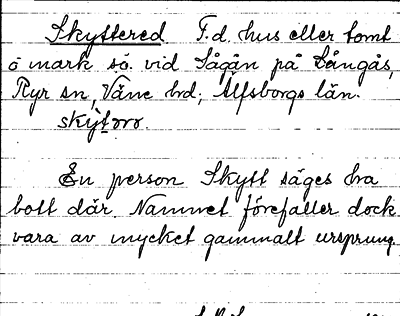 Skyttered F.d. hus eller tomt
å mark sö. vid Sågån på Långås,
Ryr sn, Väne hd; Älfsborgs län.
En person Skytt säges ha
bott där. Namnet förefaller dock
vara av mycket gammalt ursprung.